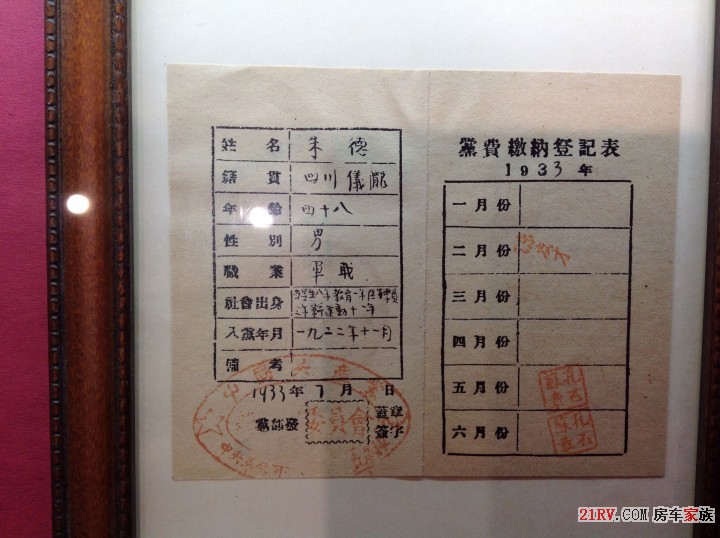 姓名 朱德
籍貫 四川儀隴
年齡 四十八
性別 男
職業 軍職
社會出身
入黨年月 一九二二年十一月
備考
1933年7月 日
黨部發 委員會 蓋章
簽字
黨費繳納登記表
1933年
一月份
二月份
三月份
四月份
五月份
六月份
21RV.COM 房车家族